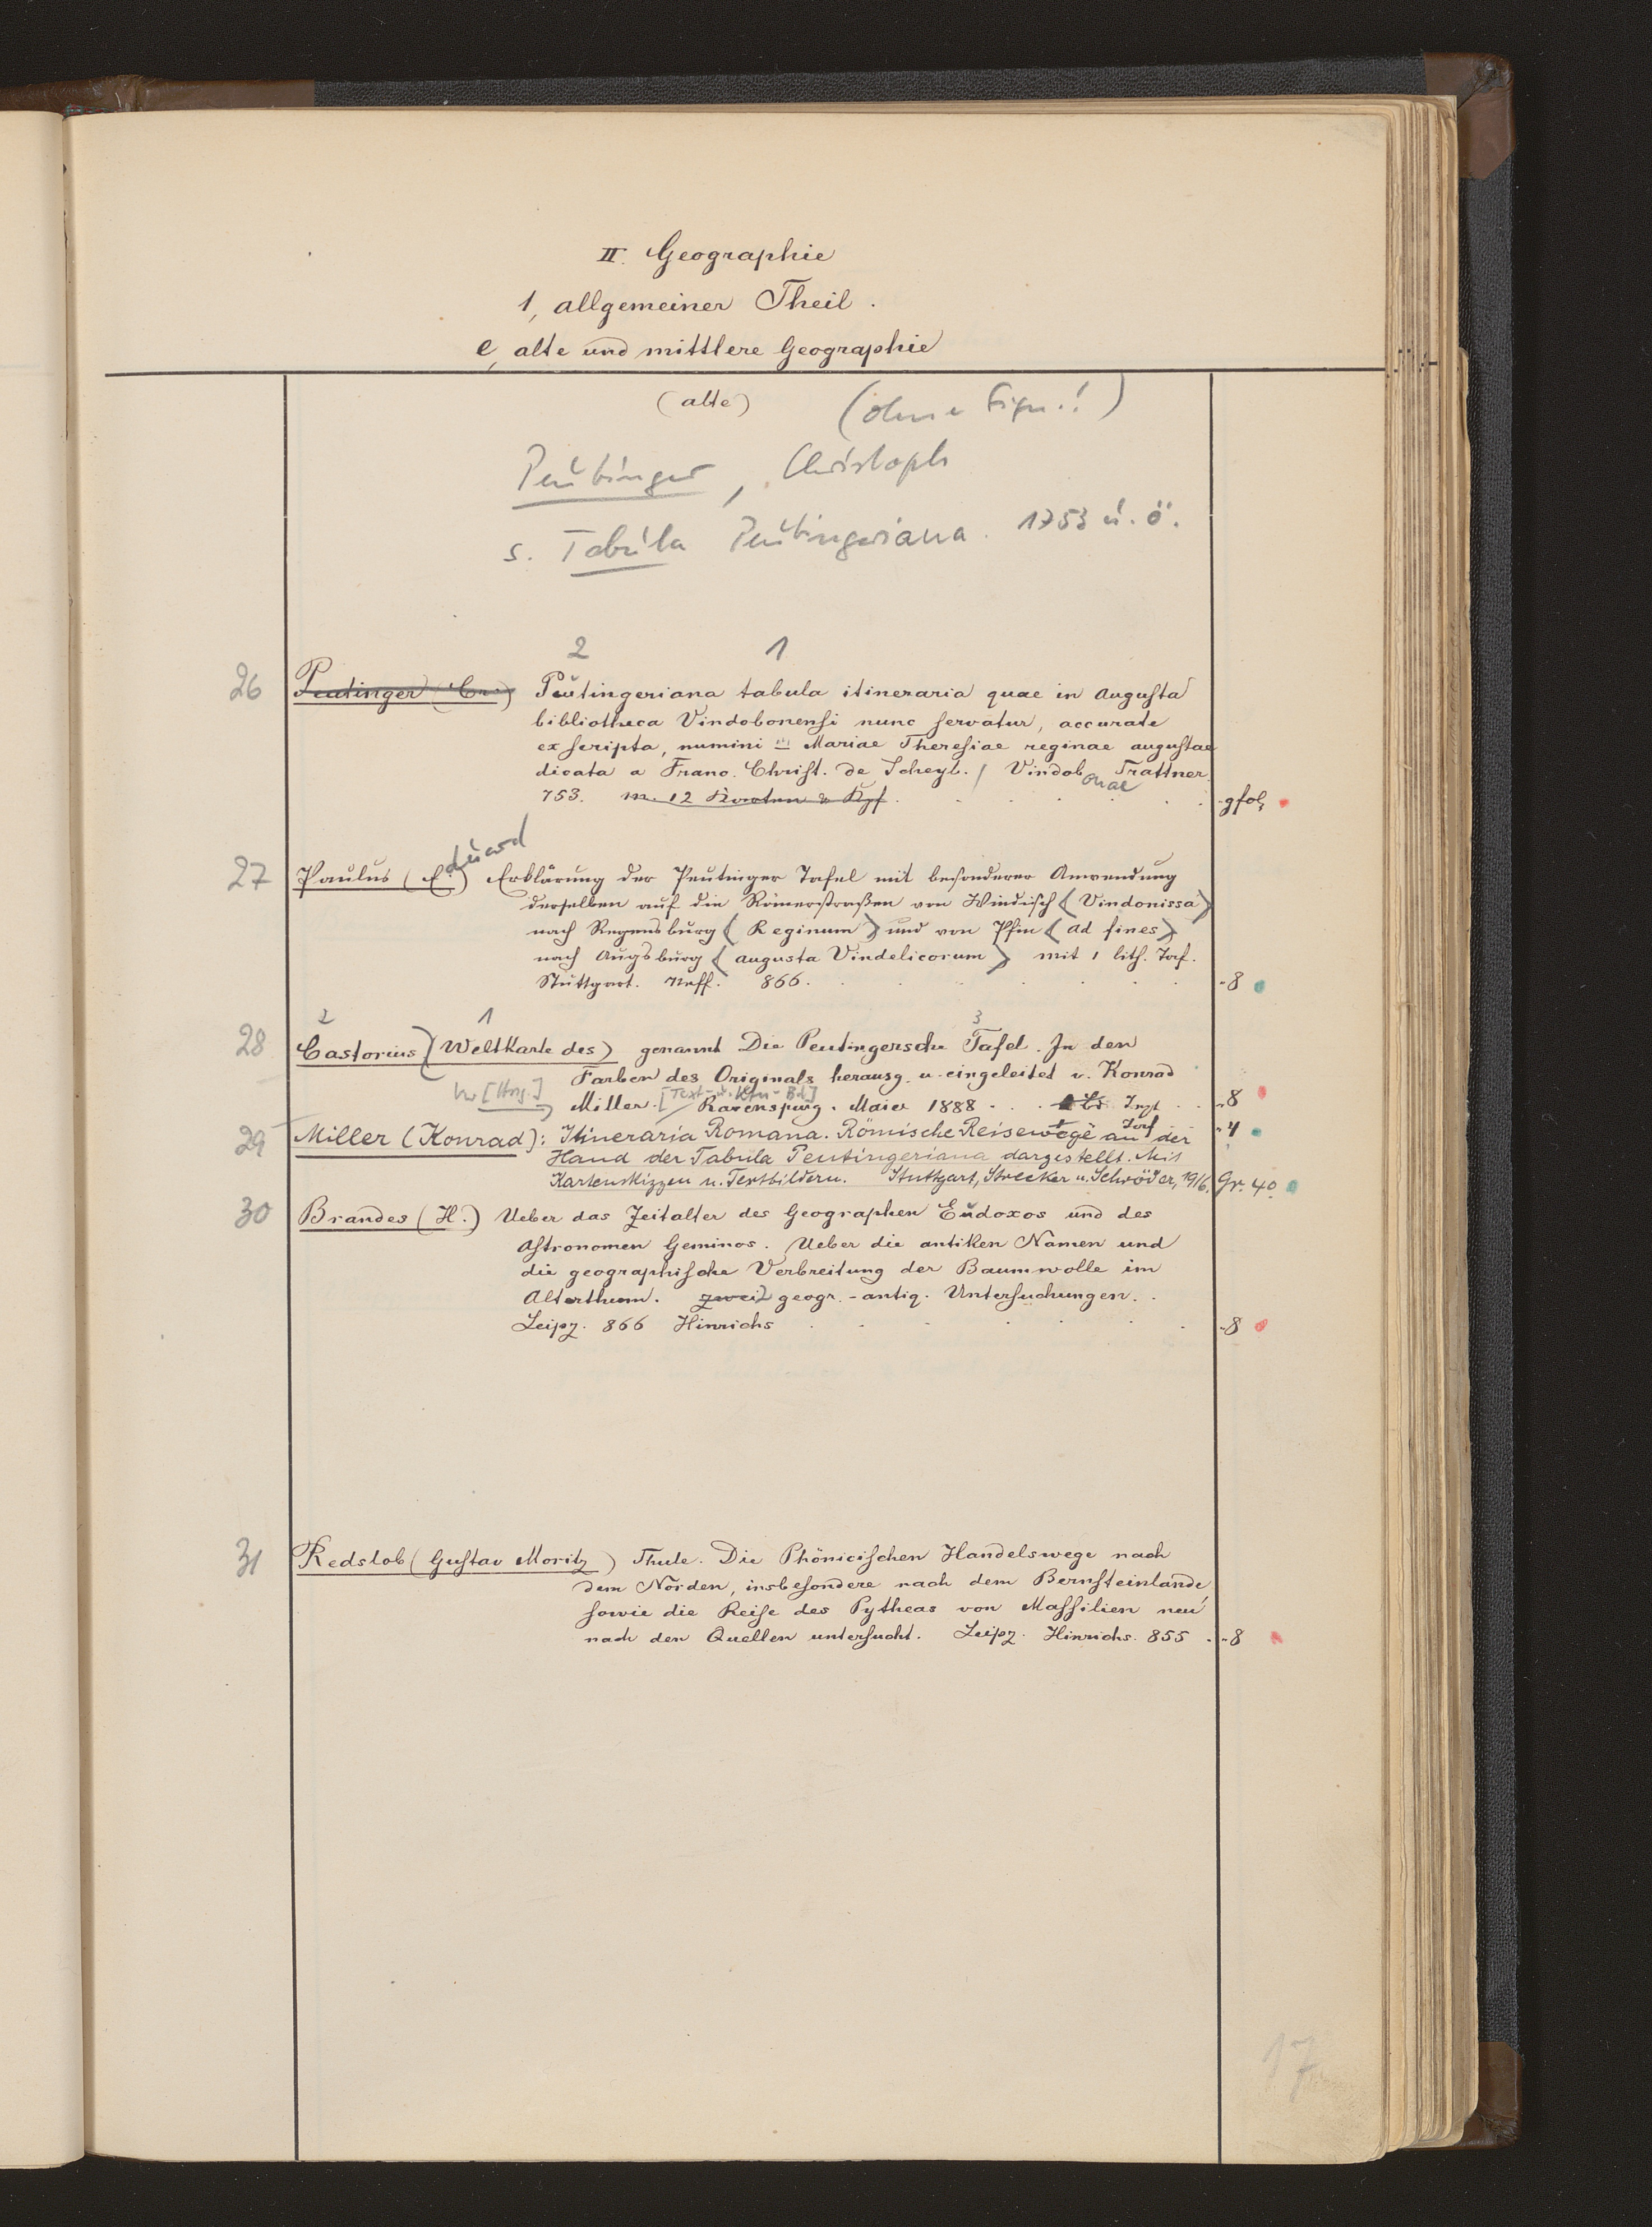 II. Geographie
1, allgemeiner Theil.
e, alte und mittlere Geographie
(alte)
(ohne Sign.!)
Peutinger, Christoph
s. Tabula Peutingeriana. 1753 u. ö.
2 1
26 Peutinger (Cr.) Peutingeriana tabula itineraria quae in Augusta
bibliotheca Vindobonensi nunc servatur, accurate
exscripta, numini Mariae Theresiae reginae augustae
dicata a Franc. Christ. de Scheyb. / Vindobonae Trattner.
753. m. 12 Karten Kpf. gfol.
27 Paulus (Eduard) Erklärung der Peutinger Tafel mit besonderer Anwendung
derselben auf die Römerstraßen von Windisch (Vindonissa)
nach Regensburg (Reginum) und von Pfin (ad fines)
nach Augsburg (augusta Vindelicorum) mit 1 lith. Taf.
Stuttgart. Neff. 866. 8
2 1 3
28 Castorius (Weltkarte des) genannt Die Peutingersche Tafel. In den
Farben des Originals herausg. u. eingeleitet v. Konrad
[Hrsg.] Miller. [Text- u. Ktn-Bd] / Ravensburg. Maier 1888 8
29 Miller (Konrad): Itineraria Romana. Römische Reisewege an der 4
Hand der Tabula Peutingeriana dargestellt. Mit
Kartenskizzen u. Textbildern. Stuttgart, Strecker u. Schröder, 1916. Gr. 4o.
30 Brandes (H.) Ueber das Zeitalter des Geographen Eudoxos und des
Astronomen Geminos. Ueber die antiken Namen und
die geographische Verbreitung der Baumwolle im
Alterthum. zwei 2 geogr.-antiq. Untersuchungen.
Leipz. 866 Hinrichs 8
31 Redslob (Gustav Moritz) Thule. Die Phönicischen Handelswege nach
dem Norden, insbesondere nach dem Bernsteinlande,
sowie die Reise des Pytheas von Massilien neu
nach den Quellen untersucht. Leipz. Hinrichs. 855 8
17